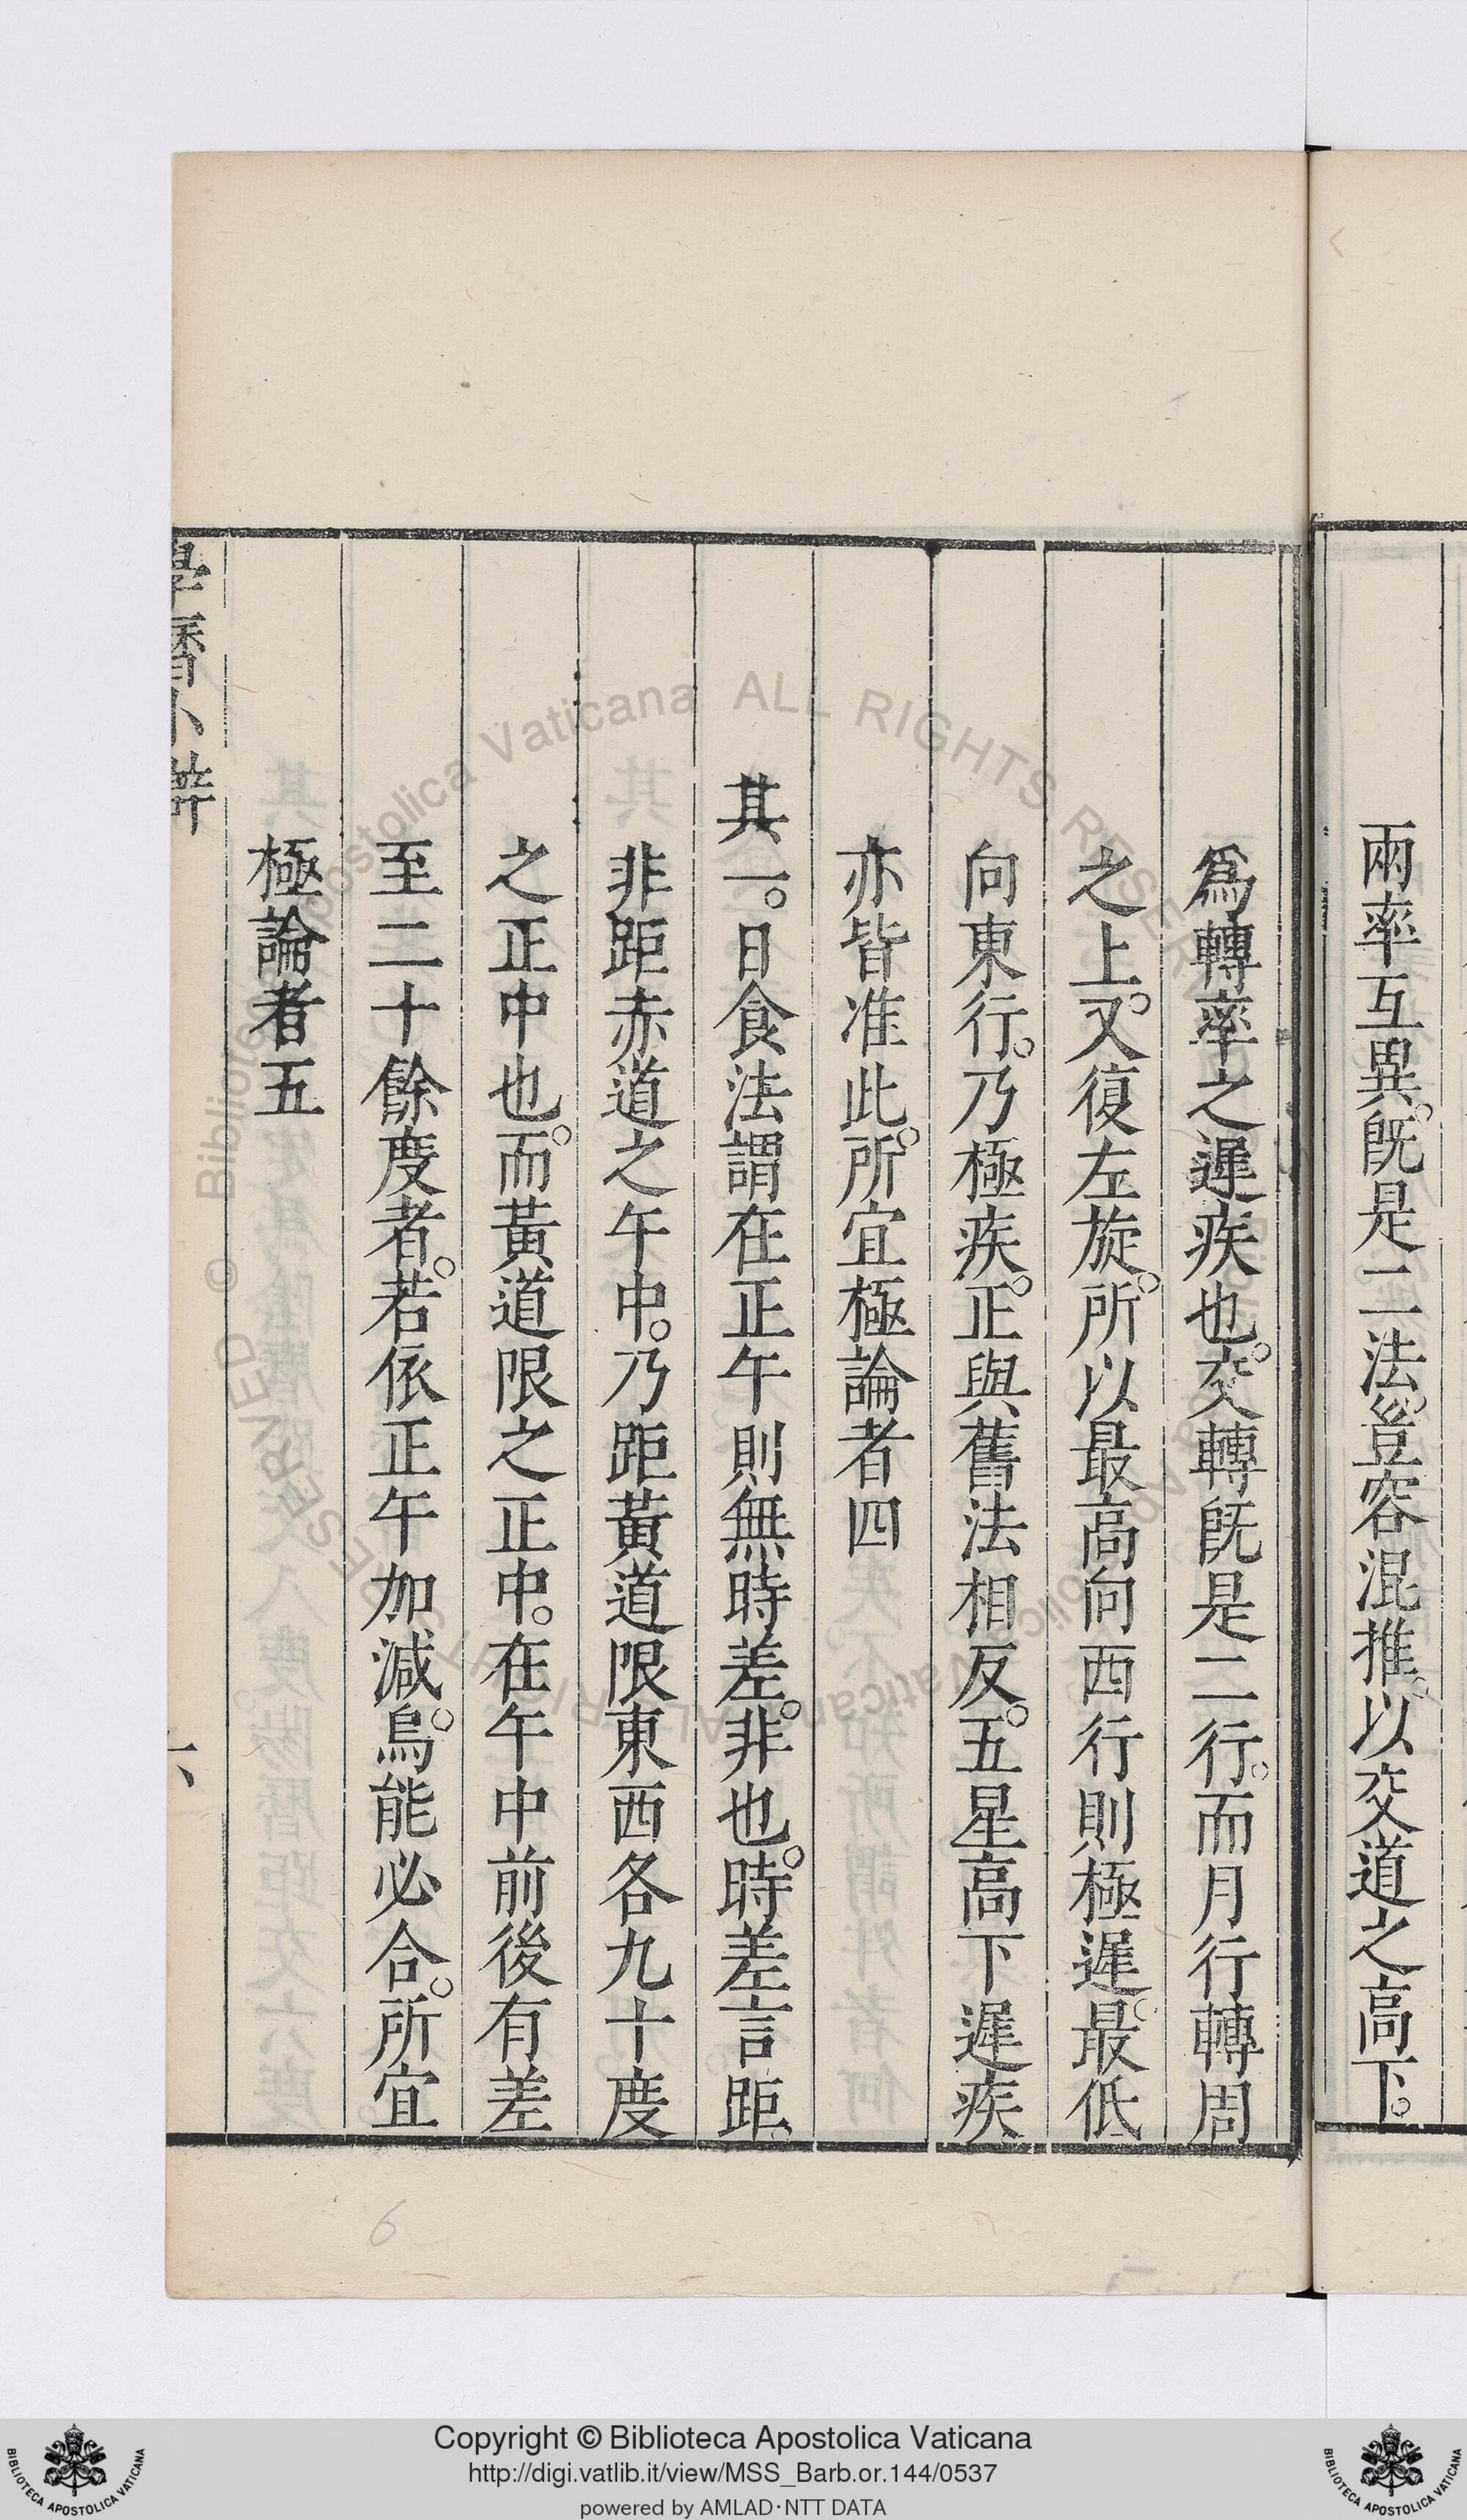 兩率互異。旣是二法。豈容混推。以交道之高下。
爲轉率之遲疾也。交轉旣是二行。而月行轉周
之上。又復左旋。所以最高向西行則極遲。最低
向東行。乃極疾。正與舊法相反。五星高下遲疾
亦皆准此。所宜極論者四
其一。日食法謂在正午則無時差。非也。時差言距。
非距赤道之午中。乃距黃道限東西各九十度
之正中也。而黃道限之正中。在午中前後有差
至二十餘度者。若依正午加減。烏能必合。所宜
極論者五
學曆小辯
六
6
Copyright © Biblioteca Apostolica Vaticana
http://digi.vatlib.it/view/MSS_Barb.or.144/0537
powered by AMLAD·NTT DATA
BIBLIOTECA APOSTOLICA VATICANA
BIBLIOTECA APOSTOLICA VATICANA
© Biblioteca Apostolica Vaticana ALL RIGHTS RESERVED